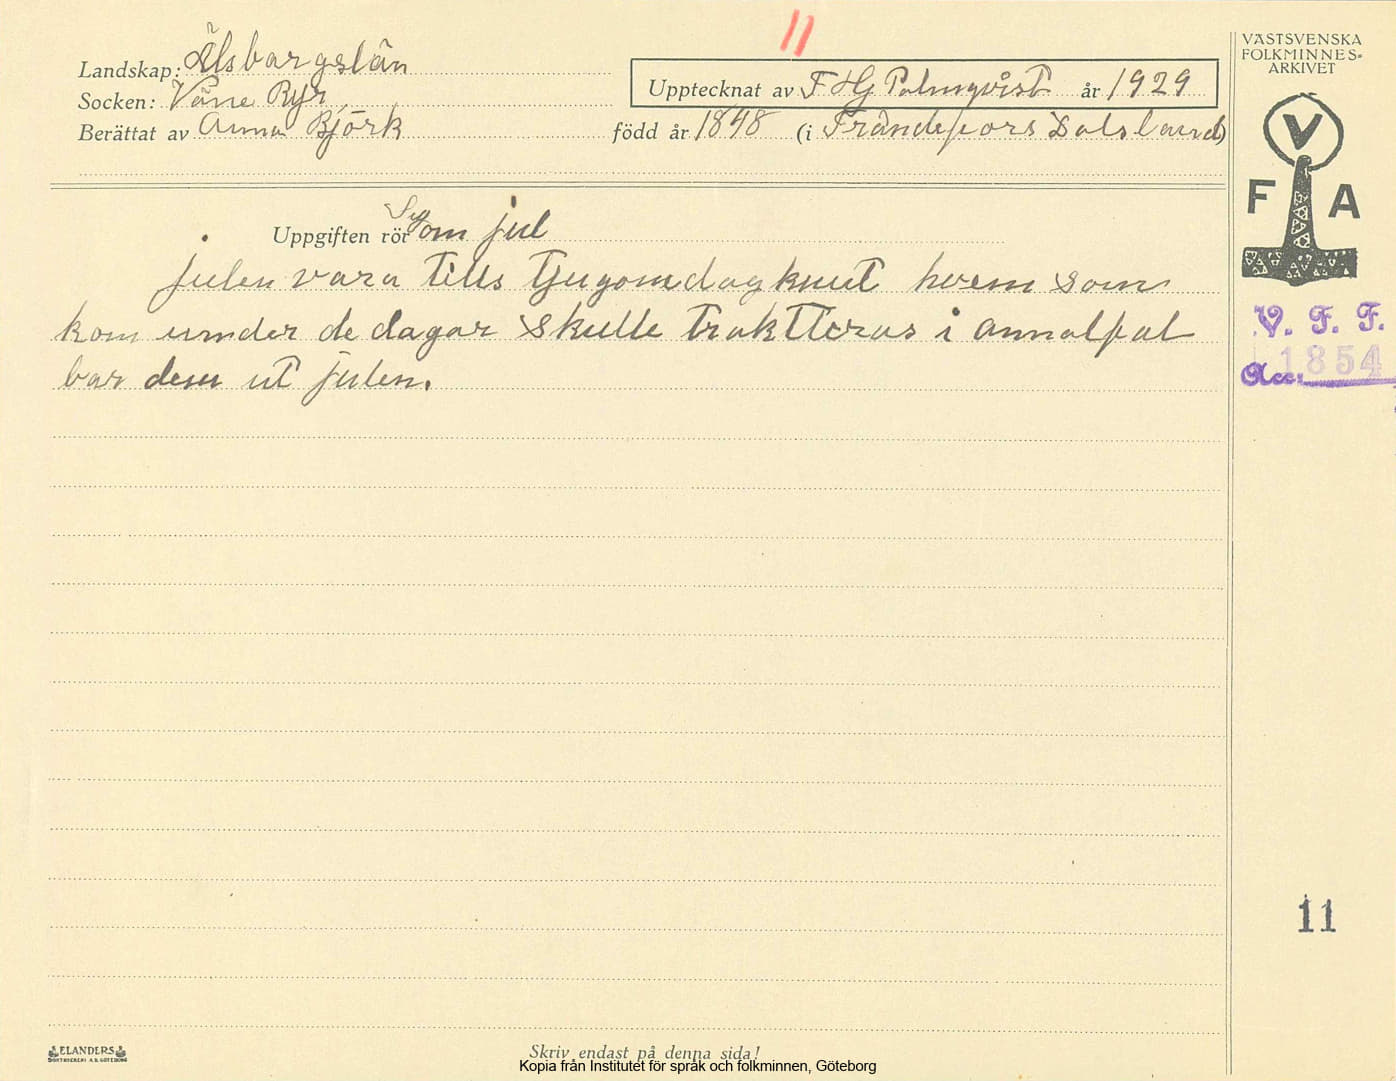 11
Landskap: Älsbargslän
Socken: Väne Ryr
Berättat av Anna Björk
Upptecknat av F HG Palmqvist år 1929
född år 1848 (i Frändefors Dalsland)
Uppgiften rör om jul
julen vara tills tjugomdagknut hvem som
kom under de dagar skulle traktteras i annalfal
bar dem ut julen.
VÄSTSVENSKA
FOLKMINNES-
ARKIVET
V
F A
V. F. F.
1854
Acc:
11
ELANDERS
BOKTRYCKERI A.B. GÖTEBORG
Skriv endast på denna sida!
Kopia från Institutet för språk och folkminnen, Göteborg